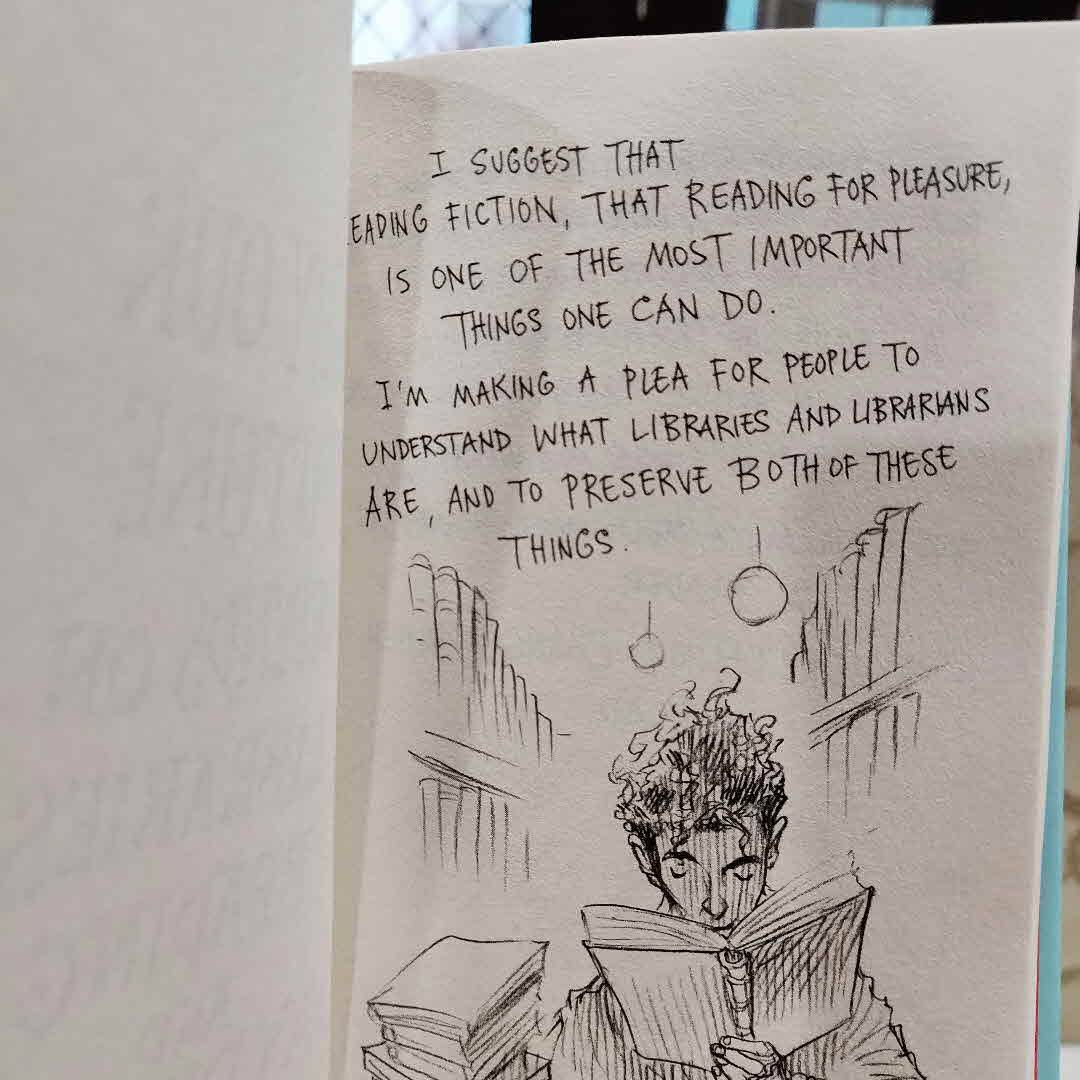 I SUGGEST THAT
EADING FICTION, THAT READING FOR PLEASURE,
IS ONE OF THE MOST IMPORTANT
THINGS ONE CAN DO.
I'M MAKING A PLEA FOR PEOPLE TO
UNDERSTAND WHAT LIBRARIES AND LIBRARIANS
ARE, AND TO PRESERVE BOTH OF THESE
THINGS.